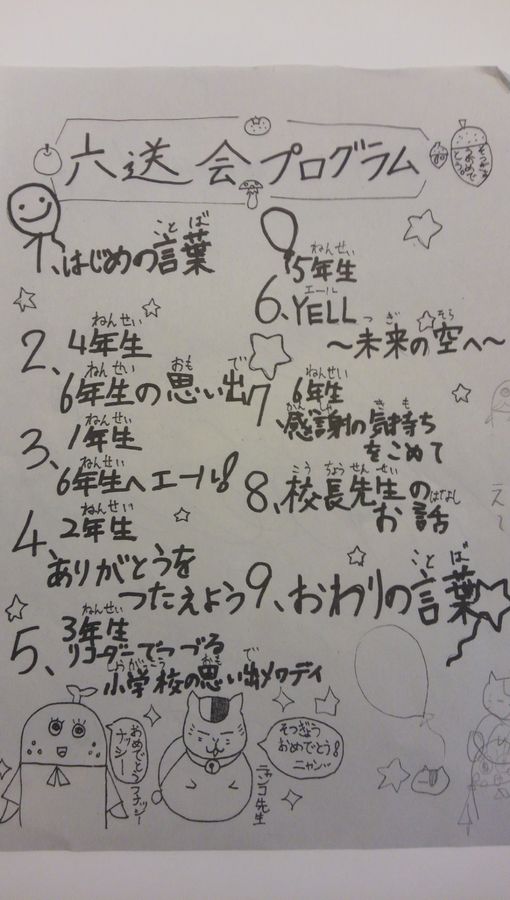 六送会プログラム
そつぎょう
おめで
とう。
1、はじめの言葉
ことば
2、4年生
ねんせい
6年生の思い出
ねんせい おも で
3、1年生
ねんせい
6年生へエール!
ねんせい
4、2年生
ねんせい
ありがとうを
つたえよう
5、3年生
ねんせい
リコーダーでつづる
小学校の思い出メロディ
しょうがっこう おも で
5年生
ねんせい
6、YELL
エール
〜未来の空へ〜
つぎ そら
7、6年生
ねんせい
感謝の気持ち
かんしゃ きも
をこめて
8、校長先生の
こうちょうせんせい
お話
はなし
9、おわりの言葉
ことば
おめでとうフナッシー
ナッシー
そつぎょう
おめでとう!
ニャンコ先生